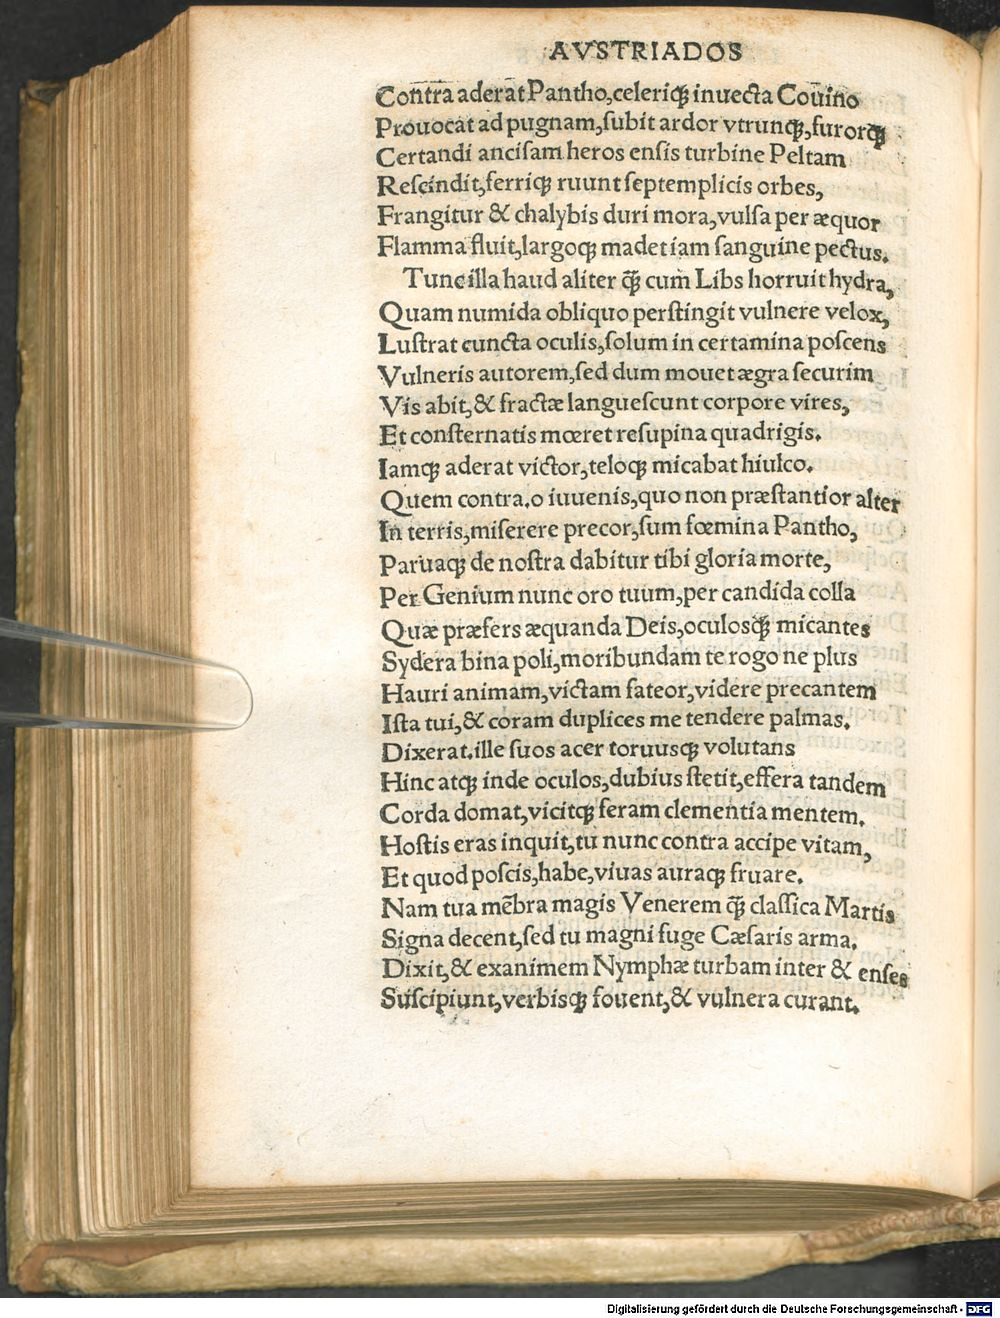 AVSTRIADOS
Contra aderat Pantho,celeriq; inuecta Couino
Prouocat ad pugnam,subit ardor vtrunq;,furorq;
Certandi ancisam heros ensis turbine Peltam
Rescindit,ferriq; ruunt septemplicis orbes,
Frangitur & chalybis duri mora,vulsa per æquor
Flamma fluit,largoq; madet iam sanguine pectus.
Tunc illa haud aliter q̃ cum Libs horruit hydra,
Quam numida obliquo perstingit vulnere velox,
Lustrat cuncta oculis,solum in certamina poscens
Vulneris autorem,sed dum mouet ægra securim
Vis abit,& fractæ languescunt corpore vires,
Et consternatis mœret resupina quadrigis.
Iamq; aderat victor,teloq; micabat hiulco.
Quem contra.o iuuenis,quo non præstantior alter
In terris,miserere precor,sum fœmina Pantho,
Paruaq; de nostra dabitur tibi gloria morte,
Per Genium nunc oro tuum,per candida colla
Quæ præfers æquanda Deis,oculosq; micantes
Sydera bina poli,moribundam te rogo ne plus
Hauri animam,victam fateor,videre precantem
Ista tui,& coram duplices me tendere palmas.
Dixerat.ille suos acer toruusq; volutans
Hinc atq; inde oculos,dubius stetit,effera tandem
Corda domat,vicitq; feram clementia mentem.
Hostis eras inquit,tu nunc contra accipe vitam,
Et quod poscis,habe,viuas auraq; fruare.
Nam tua mẽbra magis Venerem q̃ classica Martis
Signa decent,sed tu magni fuge Cæsaris arma.
Dixit,& exanimem Nymphæ turbam inter & enses
Suscipiunt,verbisq; fouent,& vulnera curant.
Digitalisierung gefördert durch die Deutsche Forschungsgemeinschaft - DFG